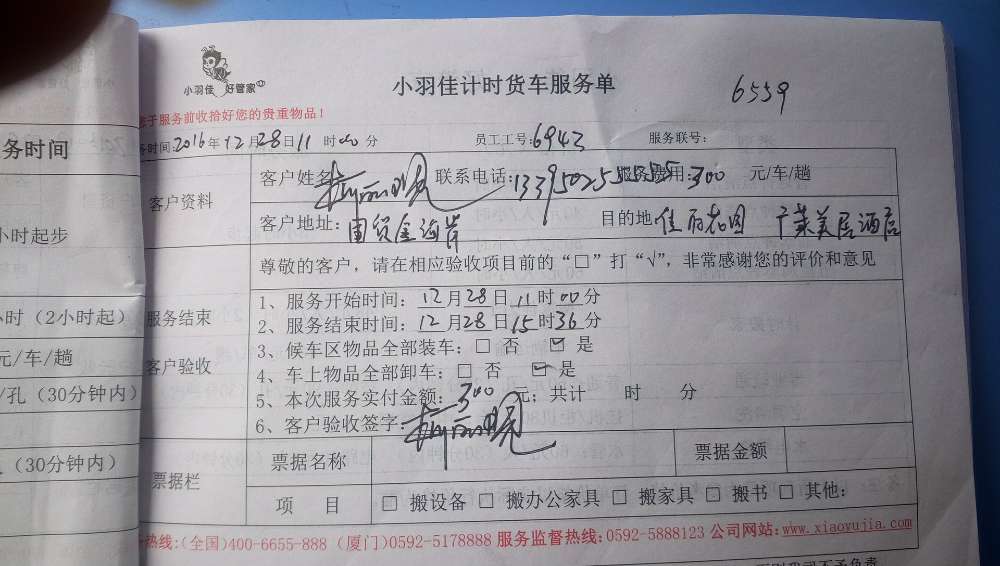 小羽佳 好管家
小羽佳计时货车服务单
6559
子服务前收拾好您的贵重物品！
务时间
务时间:2016年12月28日11时00分 员工工号:6943 服务联号:
客户资料
客户姓名: 联系电话: 服务费用:300 元/车/趟
小时起步
客户地址: 国贸金海岸 目的地 佳丽花园 美居酒店
尊敬的客户，请在相应验收项目前的“□”打“√”，非常感谢您的评价和意见
小时（2小时起）
服务结束
客户验收
1、服务开始时间：12月28日11时00分
2、服务结束时间：12月28日15时36分
元/车/趟
3、候车区物品全部装车：□ 否 ☑ 是
/孔（30分钟内）
4、车上物品全部卸车：□ 否 ☑ 是
5、本次服务实付金额：300元；共计 时 分
6、客户验收签字：
（30分钟内）
票据栏
票据名称 票据金额
项 目 □ 搬设备 □ 搬办公家具 □ 搬家具 □ 搬书 □ 其他：
热线:(全国)400-6655-888 (厦门)0592-5178888 服务监督热线:0592-5888123 公司网站:www.xiaoyujia.com